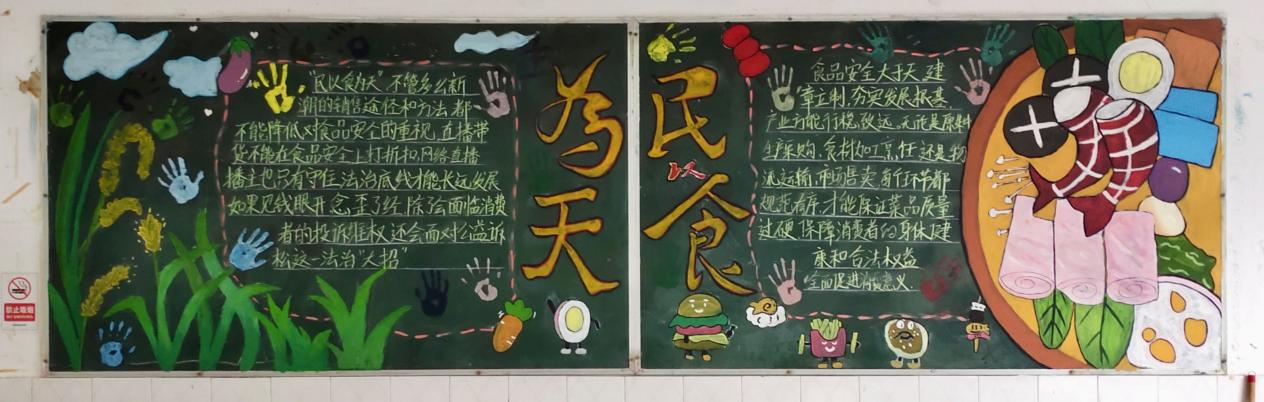 "民以食为天"不管多么新
潮的销售途径和方法,都
不能降低对食品安全的重视,直播带
货不能在食品安全上打折扣,网络直播
播主也只有守住法治底线才能长远发展
如果见钱眼开,念歪了经,除了会面临消费
者的投诉维权,还会面对公益诉
讼这一法治"大招"
为天
民以食
食品安全大于天,建
章立制,夯实发展根基,
产业方能行稳致远,无论是原料
生产采购,食材加工烹饪还是物
流运输,市场售卖,每个环节都
规范有序,才能保证菜品质量
过硬,保障消费者的身体健
康和合法权益
全面促进消费意义.
禁止吸烟
NO SMOKING